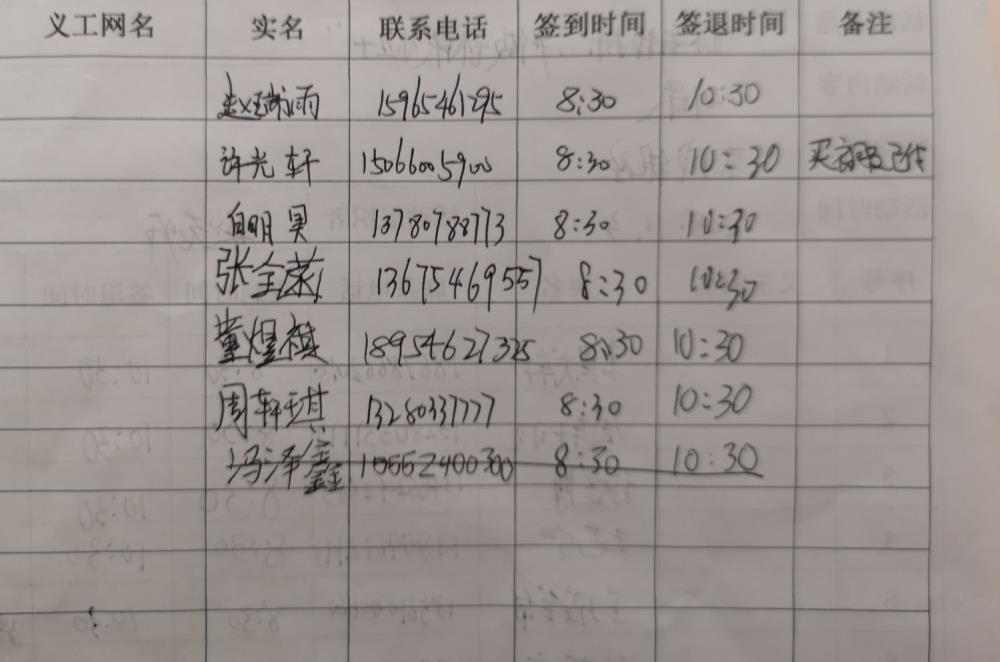 义工网名 实名 联系电话 签到时间 签退时间 备注
赵瑞雨 15965461295 8:30 10:30
许光轩 15066005900 8:30 10:30
白明昊 13780788773 8:30 10:30
张全蕊 13675469557 8:30 10:30
董煜祺 18954627325 8:30 10:30
周轩琪 13280337777 8:30 10:30
冯泽鑫 10662400300 8:30 10:30